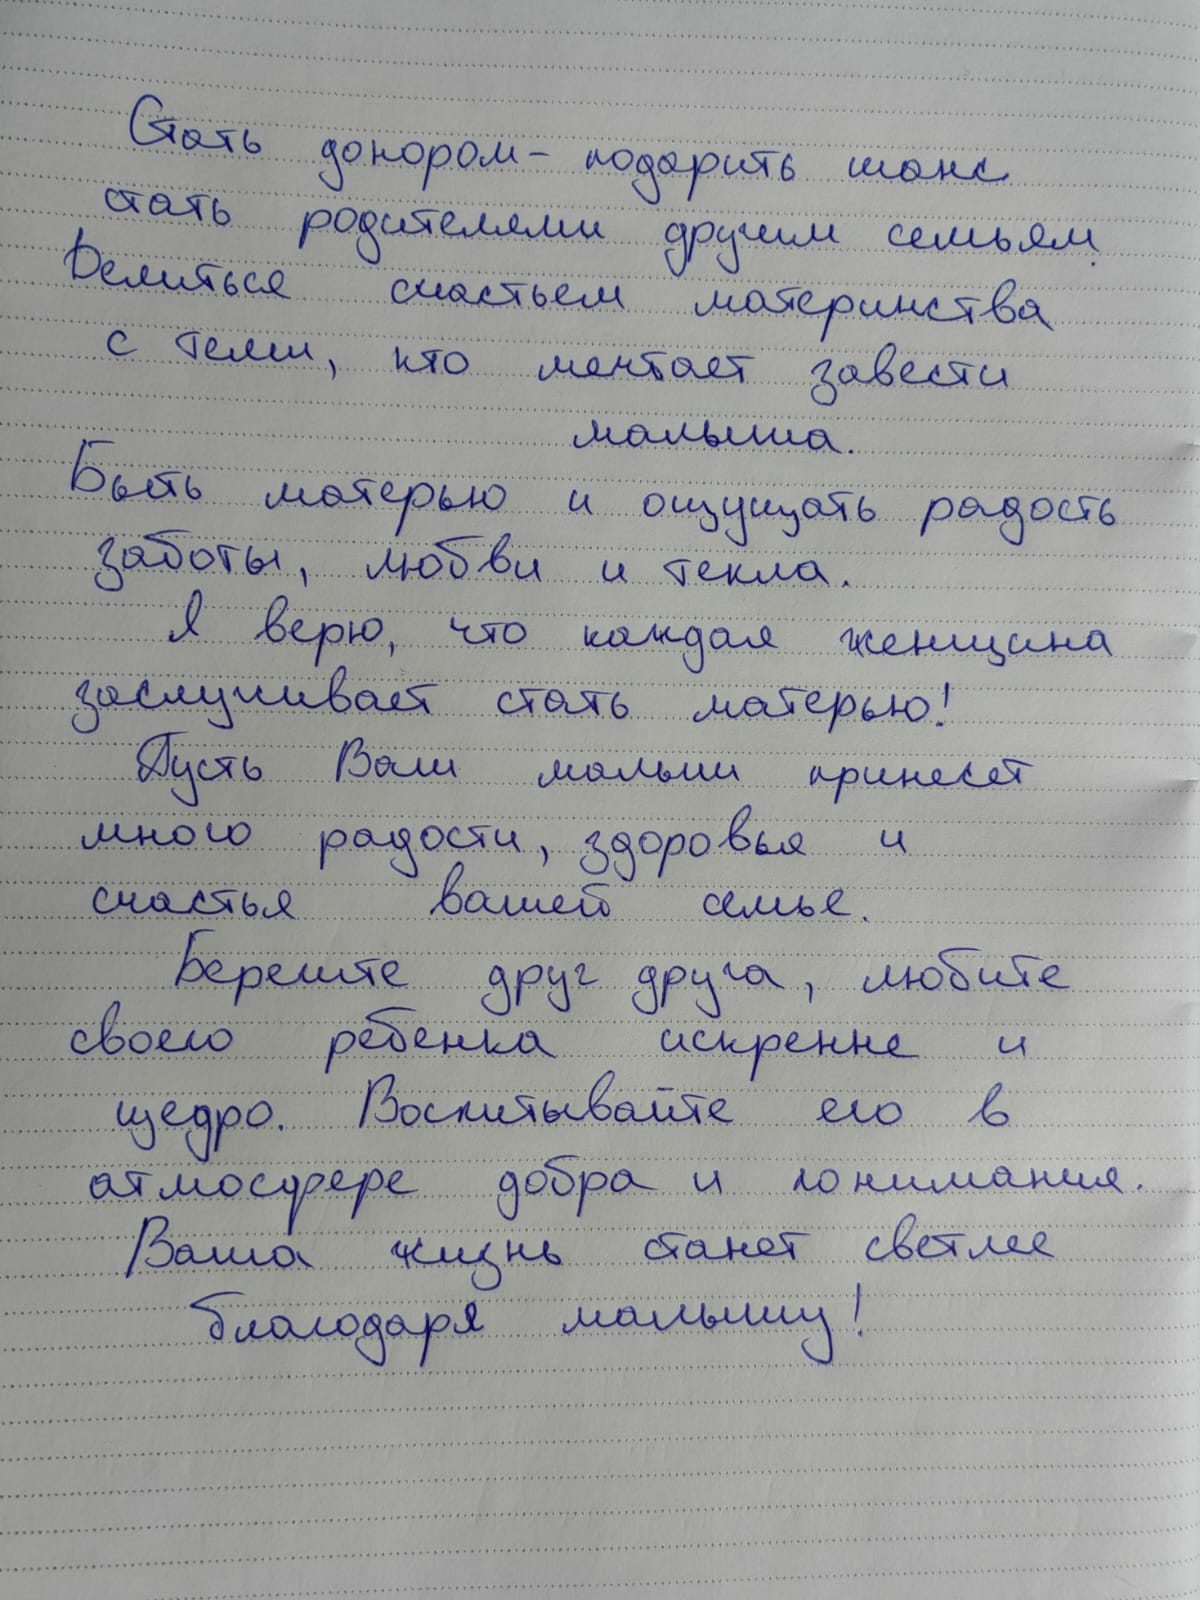 Стать донором - подарить шанс
стать родителями другим семьям.
Делиться счастьем материнства
с теми, кто мечтает завести
малыша.
Быть матерью и ощущать радость
заботы, любви и тепла.
Я верю, что каждая женщина
заслуживает стать матерью!
Пусть Ваш малыш принесет
много радости, здоровья и
счастья вашей семье.
Берегите друг друга, любите
своего ребенка искренне и
щедро. Воспитывайте его в
атмосфере добра и понимания.
Ваша жизнь станет светлее
благодаря малышу!